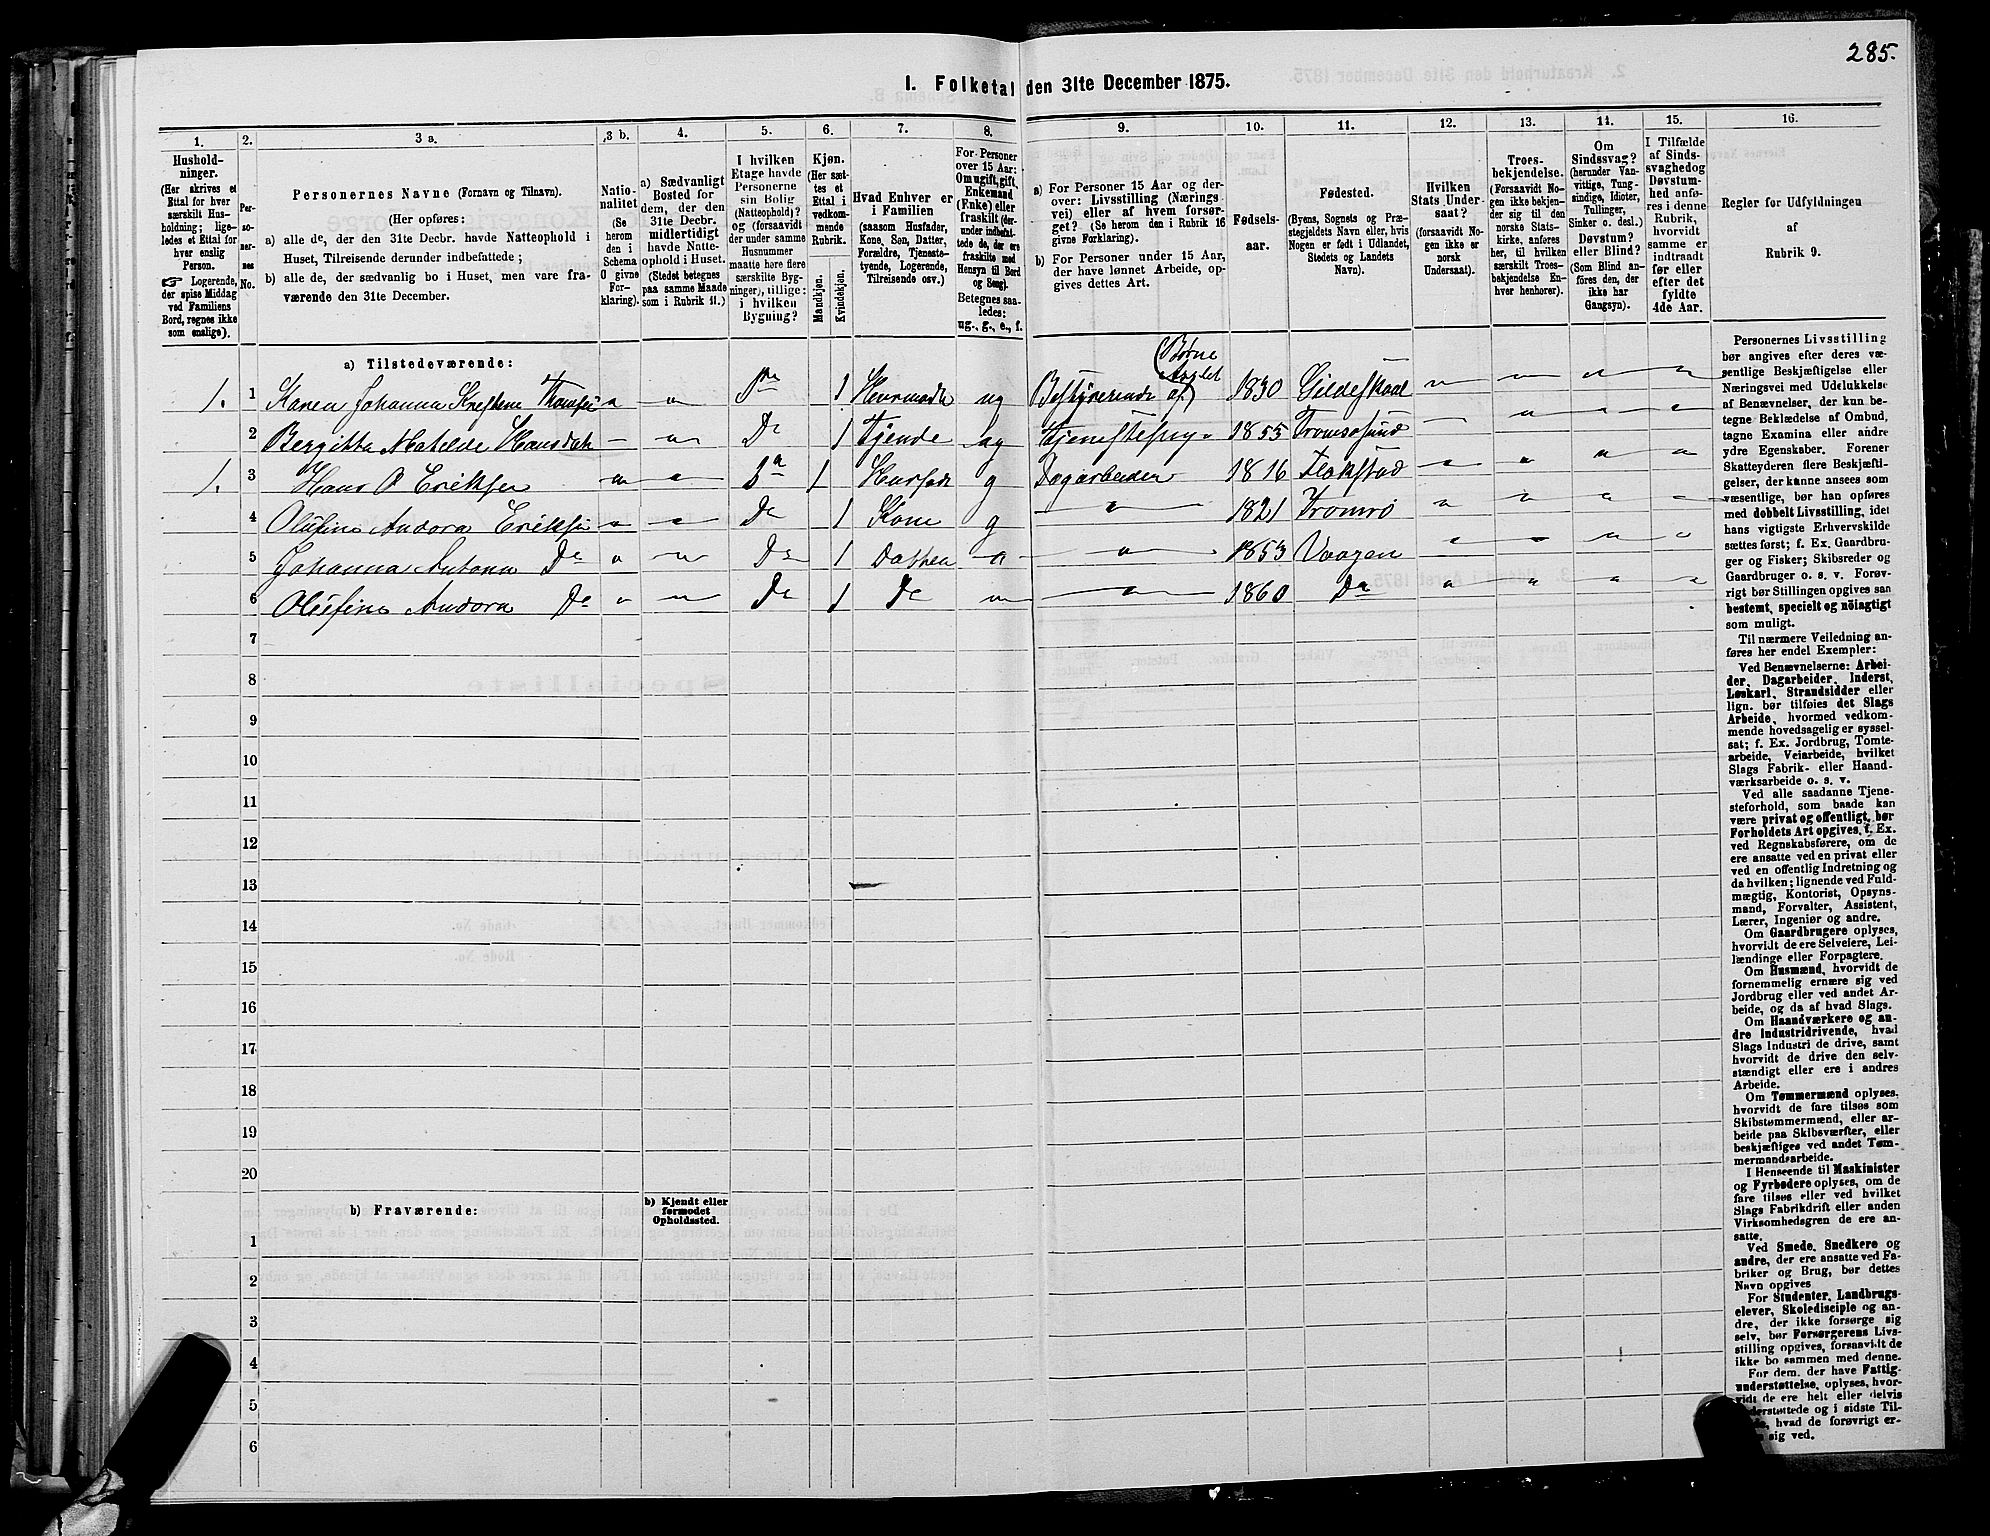 285.
I. Folketal den 31te December 1875.
1. 2. 3 a. 3 b. 4. 5. 6. 7. 8. 9. 10. 11. 12. 13. 14. 15. 16.
Hushold-
ninger.
(Her skrives et
Ettal for hver
særskilt Hus-
holdning; lige-
ledes et Ettal for
hver enslig
Person.
☞ Logerende,
der spise Middag
ved Familiens
Bord, regnes ikke
som enslige).
Per-
so-
ner-
nes
No.
Personernes Navne (Fornavn og Tilnavn).
(Her opføres:
a) alle de, der den 31te Decbr. havde Natteophold i
Huset, Tilreisende derunder indbefattede;
b) alle de, der sædvanlig bo i Huset, men vare fra-
værende den 31te December.
Natio-
nalitet
(Se
herom
den i
Schema
O givne
For-
klaring).
a) Sædvanligt
Bosted for
dem, der den
31te Decbr.
midlertidigt
havde Natte-
ophold i Huset.
(Stedet betegnes
paa samme Maade
som i Rubrik 11.)
I hvilken
Etage havde
Personerne
sin Bolig
(Natteophold)?
og (forsaavidt
der under samme
Husnummer
maatte høre flere
særskilte Byg-
ninger), tillige:
i hvilken
Bygning?
Kjøn.
(Her sæt-
tes et
Ettal i
vedkom-
mende
Rubrik.
Mandkjøn.
Kvindekjøn.
Hvad Enhver er
i Familien
(saasom Husfader,
Kone, Søn, Datter,
Forældre, Tjeneste-
tyende, Logerende,
Tilreisende osv.)
For Personer
over 15 Aar:
Om ugift, gift,
Enkemand
(Enke) eller
fraskilt (der-
under indbefat-
tede de, der ere
fraskilte med
Hensyn til Bord
og Seng).
Betegnes saa-
ledes:
ug., g., e., f.
a) For Personer 15 Aar og der-
over: Livsstilling (Nærings-
vei) eller af hvem forsør-
get? (Se herom den i Rubrik 16
givne Forklaring).
b) For Personer under 15 Aar,
der have lønnet Arbeide, op-
gives dettes Art.
Fødsels-
aar.
Fødested.
(Byens, Sognets og Præ-
stegjeldets Navn eller, hvis
Nogen er født i Udlandet,
Stedets og Landets
Navn).
Hvilken
Stats Under-
saat?
(forsaavidt No-
gen ikke er
norsk
Undersaat).
Troes-
bekjendelse.
(Forsaavidt No-
gen ikke bekjen-
der sig til den
norske Stats-
kirke, anføres
her, til hvilken
særskilt Troes-
bekjendelse En-
hver henhører).
Om
Sindssvag?
(herunder Van-
vittige, Tung-
sindige, Idioter,
Tullinger,
Sinker o. desl.)
Døvstum?
eller Blind?
(Som Blind an-
føres den, der
ikke har
Gangsyn).
I Tilfælde
af Sinds-
svaghed og
Døvstum-
hed anfø-
res i denne
Rubrik,
hvorvidt
samme er
indtraadt
før eller
efter det
fyldte
4de Aar.
Regler for Udfyldningen
af
Rubrik 9.
a) Tilstedeværende:
1. 1 Karen Johanna 1 ug Bestyrerinde af (Børne Asylet) 1830 Gildeskaal
2 Bergitta Matilde Hansdatt Do 1 Tjende ug 1855 Tromsøsund
1. 3 Hans O Eriksen 1 Husfade g Dagarbeider 1816 Flakstad
4 Olufine Andora Eriksen Do 1 Kone g 1821 Tromsø
5 Johanna Antona Do Do 1 Datter 1853 Vaagen
6 Olufine Andora Do Do 1 Do 1860 Do
7
8
9
10
11
12
13
14
15
16
17
18
19
20
b) Fraværende:
b) Kjendt eller
formodet
Opholdssted.
1
2
3
4
5
6
Personernes Livsstilling
bør angives efter deres væ-
sentlige Beskjæftigelse eller
Næringsvei med Udelukkelse
af Benævnelser, der kun be-
tegne Beklædelse af Ombud,
tagne Examina eller andre
ydre Egenskaber. Forener
Skatteyderen flere Beskjæfti-
gelser, der kunne ansees som
væsentlige, bør han opføres
med dobbelt Livsstilling, idet
hans vigtigste Erhvervskilde
sættes først; f. Ex. Gaardbru-
ger og Fisker; Skibsreder og
Gaardbruger o. s. v. Forøv-
rigt bør Stillingen opgives saa
bestemt, specielt og nöiagtigt
som muligt.
Til nærmere Veiledning an-
føres her endel Exempler:
Ved Benævnelserne: Arbei-
der, Dagarbeider, Inderst,
Løskarl, Strandsidder eller
lign. bør tilføies det Slags
Arbeide, hvormed vedkom-
mende hovedsagelig er syssel-
sat; f. Ex. Jordbrug, Tomte-
arbeide, Veiarbeide, hvilket
Slags Fabrik- eller Haand-
værksarbeide o. s. v.
Ved alle saadanne Tjene-
steforhold, som baade kan
være privat og offentligt, bør
Forholdets Art opgives, f. Ex.
ved Regnskabsførere, om de
ere ansatte ved en privat eller
ved en offentlig Indretning og
da hvilken; lignende ved Fuld-
mægtig, Kontorist, Opsyns-
mand, Forvalter, Assistent,
Lærer, Ingeniør og andre.
Om Gaardbrugere oplyses,
hvorvidt de ere Selveiere, Lei-
lændinge eller Forpagtere.
Om Husmænd, hvorvidt de
fornemmelig ernære sig ved
Jordbrug eller ved andet Ar-
beide, og da af hvad Slags.
Om Haandværkere og an-
dre Industridrivende, hvad
Slags Industri de drive, samt
hvorvidt de drive den selv-
stændigt eller ere i andres
Arbeide.
Om Tømmermænd oplyses,
hvorvidt de fare tilsøs som
Skibstømmermænd, eller ar-
beide paa Skibsværfter, eller
beskjæftiges ved andet Tøm-
mermandsarbeide.
I Henseende til Maskinister
og Fyrbødere oplyses, om de
fare tilsøs eller ved hvilket
Slags Fabrikdrift eller anden
Virksomhedsgren de ere an-
satte.
Ved Smede, Snedkere og
andre, der ere ansatte ved Fa-
briker og Brug, bør dettes
Navn opgives
For Studenter, Landbrugs-
elever, Skoledisciple og an-
dre, der ikke forsørge sig
selv, bør Forsørgerens Livs-
stilling opgives, forsaavidt de
ikke bo sammen med denne.
For dem, der have Fattig-
understøttelse, oplyses, hvor-
vidt de ere helt eller delvis
understøttede og i sidste Til-
hvad de forøvrigt er-
sig ved.